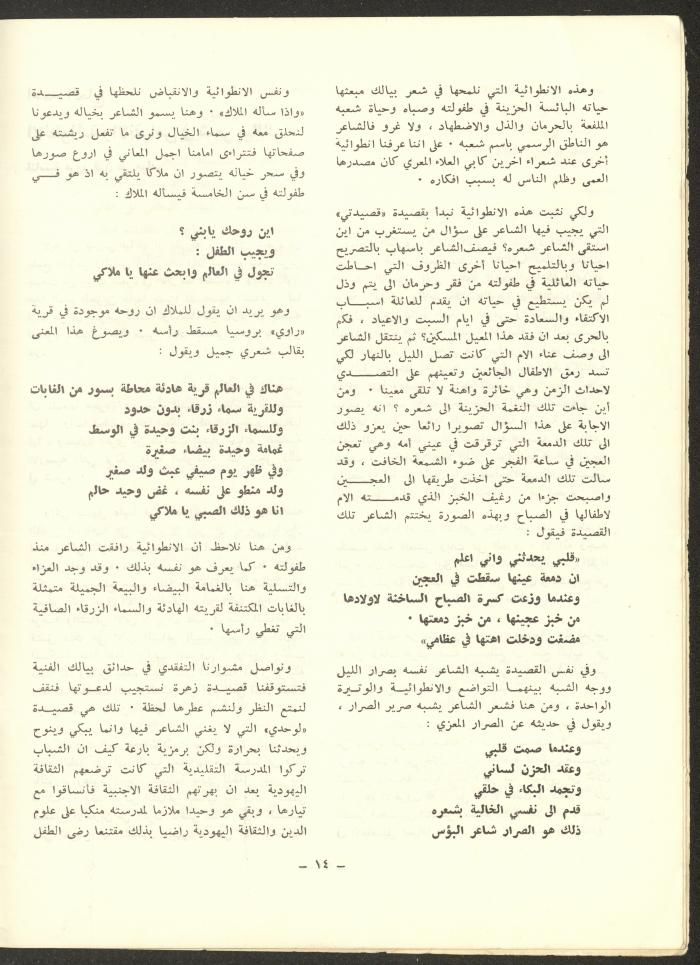 وهذه الانطوائية التي نلمحها في شعر بيالك مبعثها
حياته البائسة الحزينة في طفولته وصباه وحياة شعبه
الملفعة بالحرمان والذل والاضطهاد ، ولا غرو فالشاعر
هو الناطق الرسمي باسم شعبه · على اننا عرفنا انطوائية
أخرى عند شعراء اخرين كابي العلاء المعري كان مصدرها
العمى وظلم الناس له بسبب افكاره ·
ولكي نثبت هذه الانطوائية نبدأ بقصيدة «قصيدتي»
التي يجيب فيها الشاعر على سؤال من يستغرب من اين
استقى الشاعر شعره؟ فيصف الشاعر باسهاب بالتصريح
احيانا وبالتلميح احيانا أخرى الظروف التي احـاطت
حياته العائلية في طفولته من فقر وحرمان الى يتم وذل
لم يكن يستطيع في حياته ان يقدم للعائلة اسبــاب
الاكتفاء والسعادة حتى في ايام السبت والاعياد ، فكم
بالحرى بعد ان فقد هذا المعيل المسكين؟ ثم ينتقل الشاعر
الى وصف عناء الام التي كانت تصل الليل بالنهار لكي
تسد رمق الاطفال الجائعين وتعينهم على التصــدي
لاحداث الزمن وهي خائرة واهنة لا تلقى معينا · ومن
أين جاءت تلك النغمة الحزينة الى شعره ؟ انه يصور
الاجابة على هذا السؤال تصويرا رائعا حين يعزو ذلك
الى تلك الدمعة التي ترقرقت في عيني أمه وهي تعجن
العجين في ساعة الفجر على ضوء الشمعة الخافت ، وقد
سالت تلك الدمعة حتى اخذت طريقها الى العجــين
واصبحت جزءا من رغيف الخبز الذي قدمــته الام
لاطفالها في الصباح وبهذه الصورة يختتم الشاعر تلك
القصيدة فيقول :
«قلبي يحدثني واني اعلم
ان دمعة عينها سقطت في العجين
وعندما وزعت كسرة الصباح الساخنة لاولادها
من خبز عجينها ، من خبز دمعتها ·
مضغت ودخلت اهتها في عظامي»
وفي نفس القصيدة يشبه الشاعر نفسه بصرار الليل
ووجه الشبه بينهمـا التواضع والانطوائيـة والوتـيرة
الواحدة ، ومن هنا فشعر الشاعر يشبه صرير الصرار ،
ويقول في حديثه عن الصرار المعزي :
وعندما صمت قلبي
وعقد الحزن لساني
وتجمد البكاء في حلقي
قدم الى نفسي الخالية بشعره
ذلك هو الصرار شاعر البؤس
ونفس الانطوائية والانقباض نلحظها في قصيــدة
«واذا سأله الملاك» · وهنا يسمو الشاعر بخياله ويدعونا
لنحلق معه في سماء الخيال ونرى ما تفعل ريشته على
صفحاتها فتتراءى امامنا اجمل المعاني في اروع صورها
وفي سحر خياله يتصور ان ملاكا يلتقي به اذ هو فــي
طفولته في سن الخامسة فيسأله الملاك :
اين روحك يابني ؟
ويجيب الطفل :
تجول في العالم وابحث عنها يا ملاكي
وهو يريد ان يقول للملاك ان روحه موجودة في قرية
«راوي» بروسيا مسقط رأسه · ويصوغ هذا المعنى
بقالب شعري جميل ويقول :
هناك في العالم قرية هادئة محاطة بسور من الغابات
وللقرية سماء زرقاء بدون حدود
وللسماء الزرقاء بنت وحيدة في الوسط
غمامة وحيدة بيضاء صغيرة
وفي ظهر يوم صيفي عبث ولد صغير
ولد منطو على نفسه ، غض وحيد حالم
انا هو ذلك الصبي يا ملاكي
ومن هنا نلاحظ أن الانطوائية رافقت الشاعر منذ
طفولته · كما يعرف هو نفسه بذلك · وقد وجد العزاء
والتسلية هنا بالغمامة البيضاء والبيعة الجميلة متمثلة
بالغابات المكتنفة لقريته الهادئة والسماء الزرقاء الصافية
التي تغطي رأسها ·
ونواصل مشوارنا التفقدي في حدائق بيالك الفنية
فتستوقفنا قصيــدة زهرة نستجيب لدعـوتها فنقف
لنمتع النظر ولنشم عطرها لحظة · تلك هي قصيــدة
«لوحدي» التي لا يغني الشاعر فيها وانما يبكي وينوح
ويحدثنا بحرارة ولكن برمزية بارعة كيف ان الشباب
تركوا المدرسة التقليدية التي كانت ترضعهم الثقافة
اليهودية بعد ان بهرتهم الثقافة الاجنبية فأنساقوا مع
تيارها ، وبقي هو وحيدا ملازما لمدرسته منكبا على علوم
الدين والثقافة اليهودية راضيا بذلك مقتنعا رضى الطفل
– ١٤ –